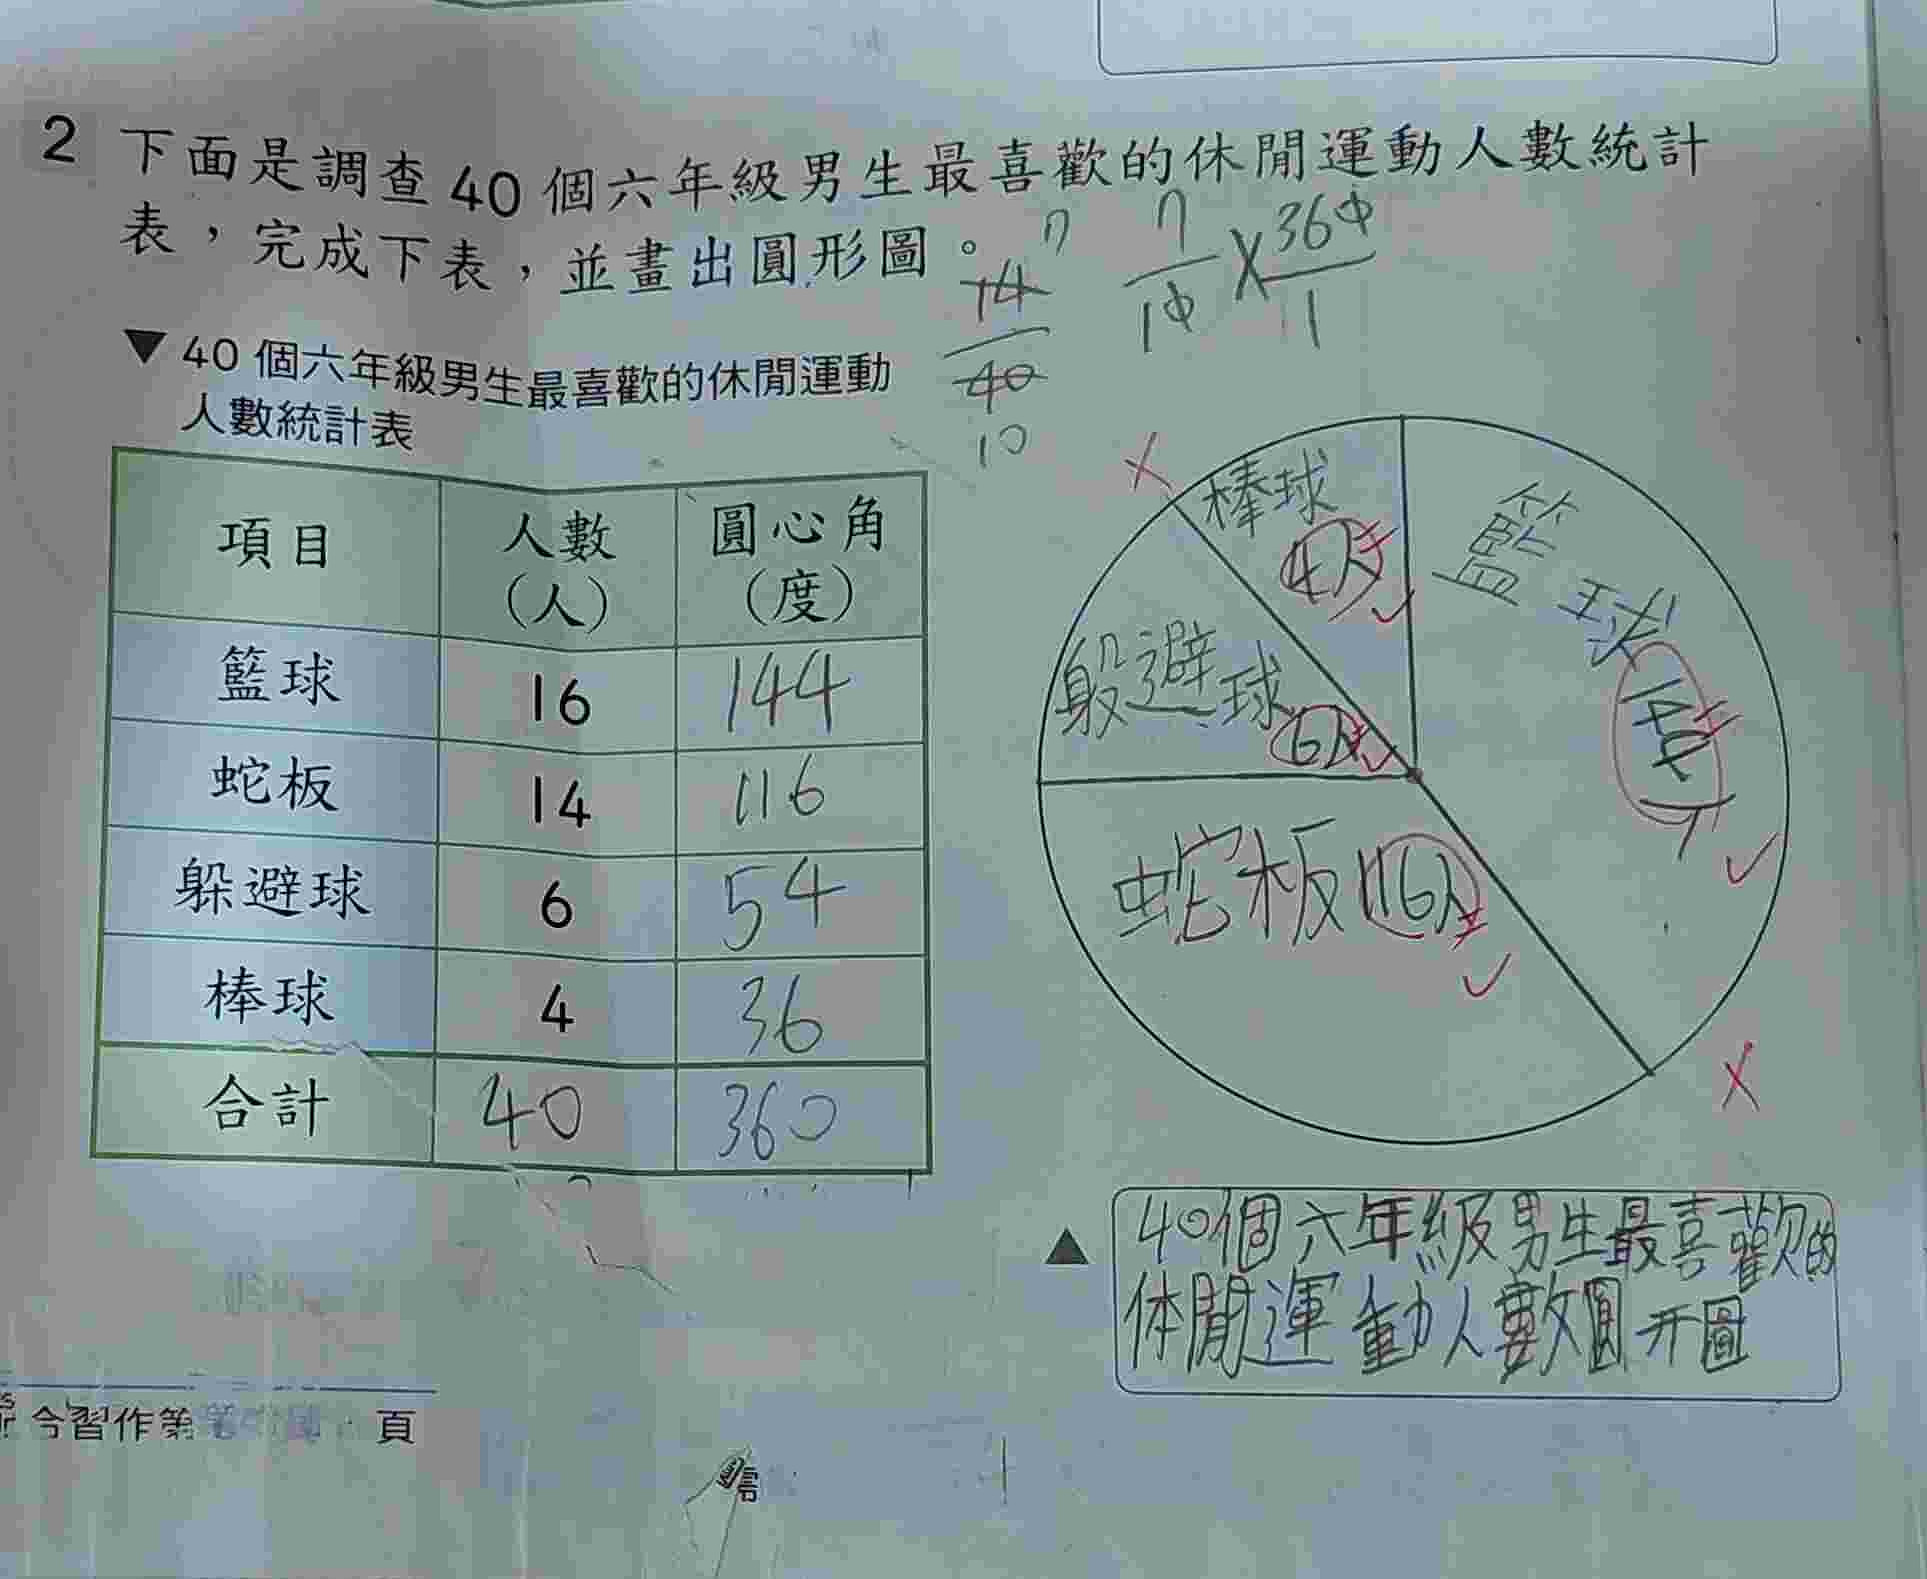 2 下面是調查 40 個六年級男生最喜歡的休閒運動人數統計
表，完成下表，並畫出圓形圖。
7
14
40
10
7/10 × 360/1
▼ 40 個六年級男生最喜歡的休閒運動
人數統計表
項目 人數（人） 圓心角（度）
籃球 16 144
蛇板 14 116
躲避球 6 54
棒球 4 36
合計 40 360
棒球
4人
籃球
躲避球
6人
蛇板
▲ 40個六年級男生最喜歡的
休閒運動人數圓形圖
習作第
頁